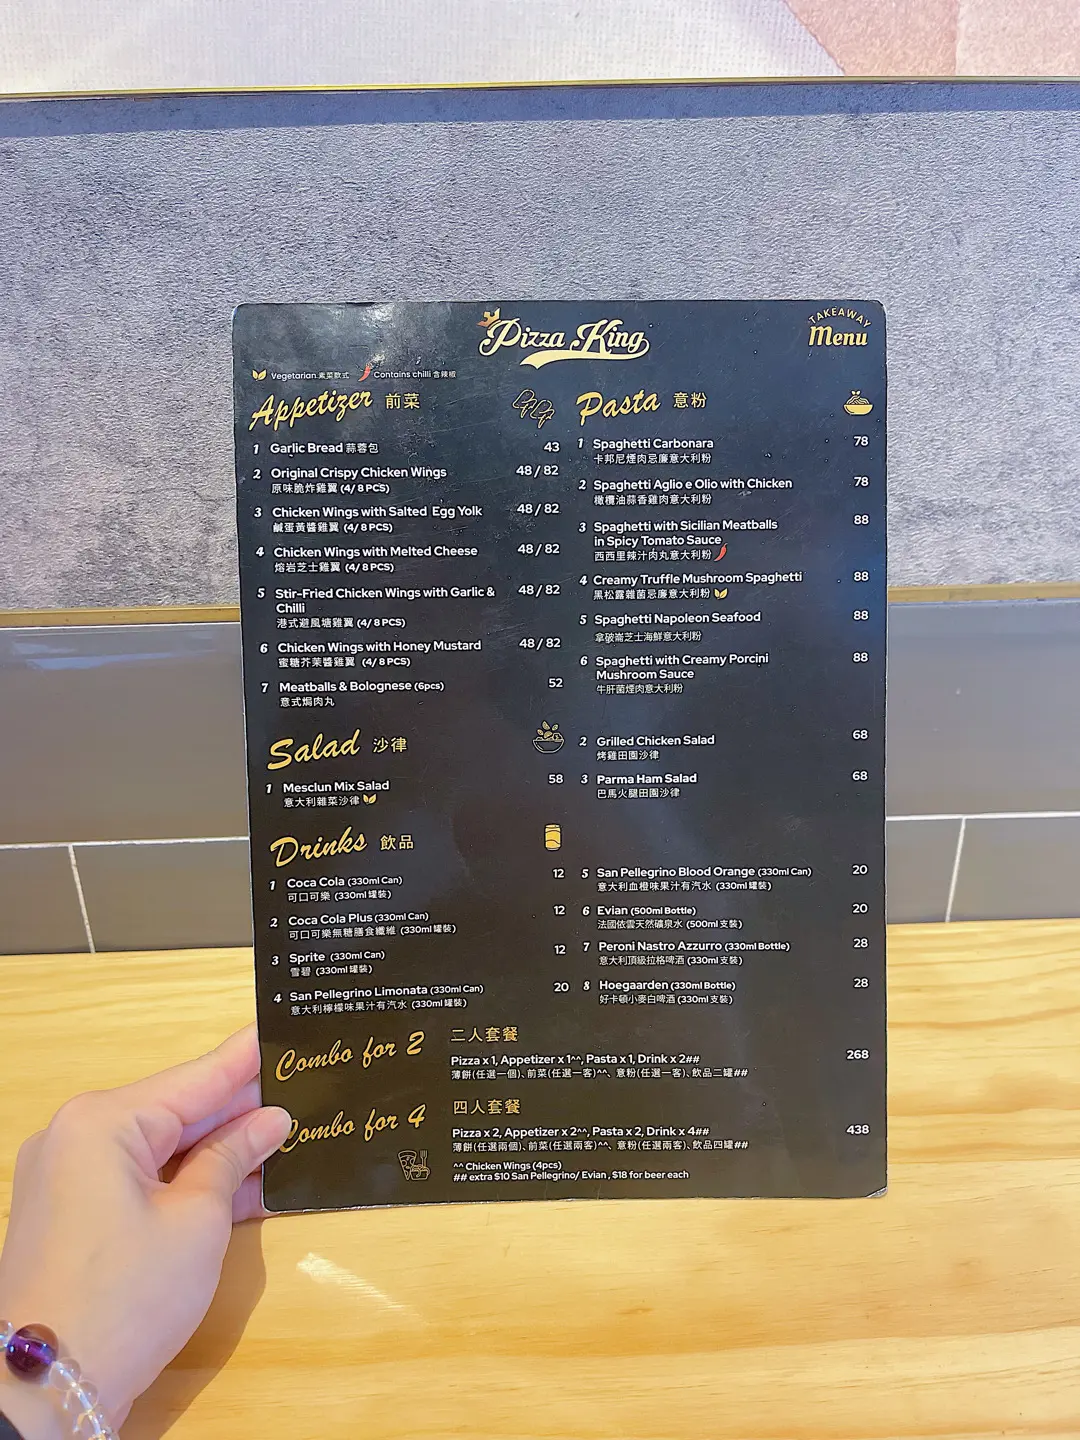 Pizza King
TAKEAWAY
Menu
Vegetarian 素菜款式
Contains chilli 含辣椒
Appetizer 前菜
1 Garlic Bread 蒜蓉包 43
2 Original Crispy Chicken Wings 48 / 82
原味脆炸雞翼 (4/ 8 PCS)
3 Chicken Wings with Salted Egg Yolk 48 / 82
鹹蛋黃醬雞翼 (4/ 8 PCS)
4 Chicken Wings with Melted Cheese 48 / 82
熔岩芝士雞翼 (4/ 8 PCS)
5 Stir-Fried Chicken Wings with Garlic & 48 / 82
Chilli
港式避風塘雞翼 (4/ 8 PCS)
6 Chicken Wings with Honey Mustard 48 / 82
蜜糖芥茉醬雞翼 (4/ 8 PCS)
7 Meatballs & Bolognese (6pcs) 52
意式焗肉丸
Pasta 意粉
1 Spaghetti Carbonara 78
卡邦尼煙肉忌廉意大利粉
2 Spaghetti Aglio e Olio with Chicken 78
橄欖油蒜香雞肉意大利粉
3 Spaghetti with Sicilian Meatballs 88
in Spicy Tomato Sauce
西西里辣汁肉丸意大利粉
4 Creamy Truffle Mushroom Spaghetti 88
黑松露雜菌忌廉意大利粉
5 Spaghetti Napoleon Seafood 88
拿破崙芝士海鮮意大利粉
6 Spaghetti with Creamy Porcini 88
Mushroom Sauce
牛肝菌煙肉意大利粉
Salad 沙律
1 Mesclun Mix Salad 58
意大利雜菜沙律
2 Grilled Chicken Salad 68
烤雞田園沙律
3 Parma Ham Salad 68
巴馬火腿田園沙律
Drinks 飲品
1 Coca Cola (330ml Can) 12
可口可樂 (330ml 罐裝)
2 Coca Cola Plus (330ml Can) 12
可口可樂無糖膳食纖維 (330ml 罐裝)
3 Sprite (330ml Can) 12
雪碧 (330ml 罐裝)
4 San Pellegrino Limonata (330ml Can) 20
意大利檸檬味果汁有汽水 (330ml 罐裝)
5 San Pellegrino Blood Orange (330ml Can) 20
意大利血橙味果汁有汽水 (330ml 罐裝)
6 Evian (500ml Bottle) 20
法國依雲天然礦泉水 (500ml 支裝)
7 Peroni Nastro Azzurro (330ml Bottle) 28
意大利頂級拉格啤酒 (330ml 支裝)
8 Hoegaarden (330ml Bottle) 28
好卡頓小麥白啤酒 (330ml 支裝)
Combo for 2 二人套餐
Pizza x 1, Appetizer x 1^^, Pasta x 1, Drink x 2## 268
薄餅(任選一個)、前菜(任選一客)^^、意粉(任選一客)、飲品二罐##
Combo for 4 四人套餐
Pizza x 2, Appetizer x 2^^, Pasta x 2, Drink x 4## 438
薄餅(任選兩個)、前菜(任選兩客)^^、意粉(任選兩客)、飲品四罐##
^^ Chicken Wings (4pcs)
## extra $10 San Pellegrino/ Evian , $18 for beer each